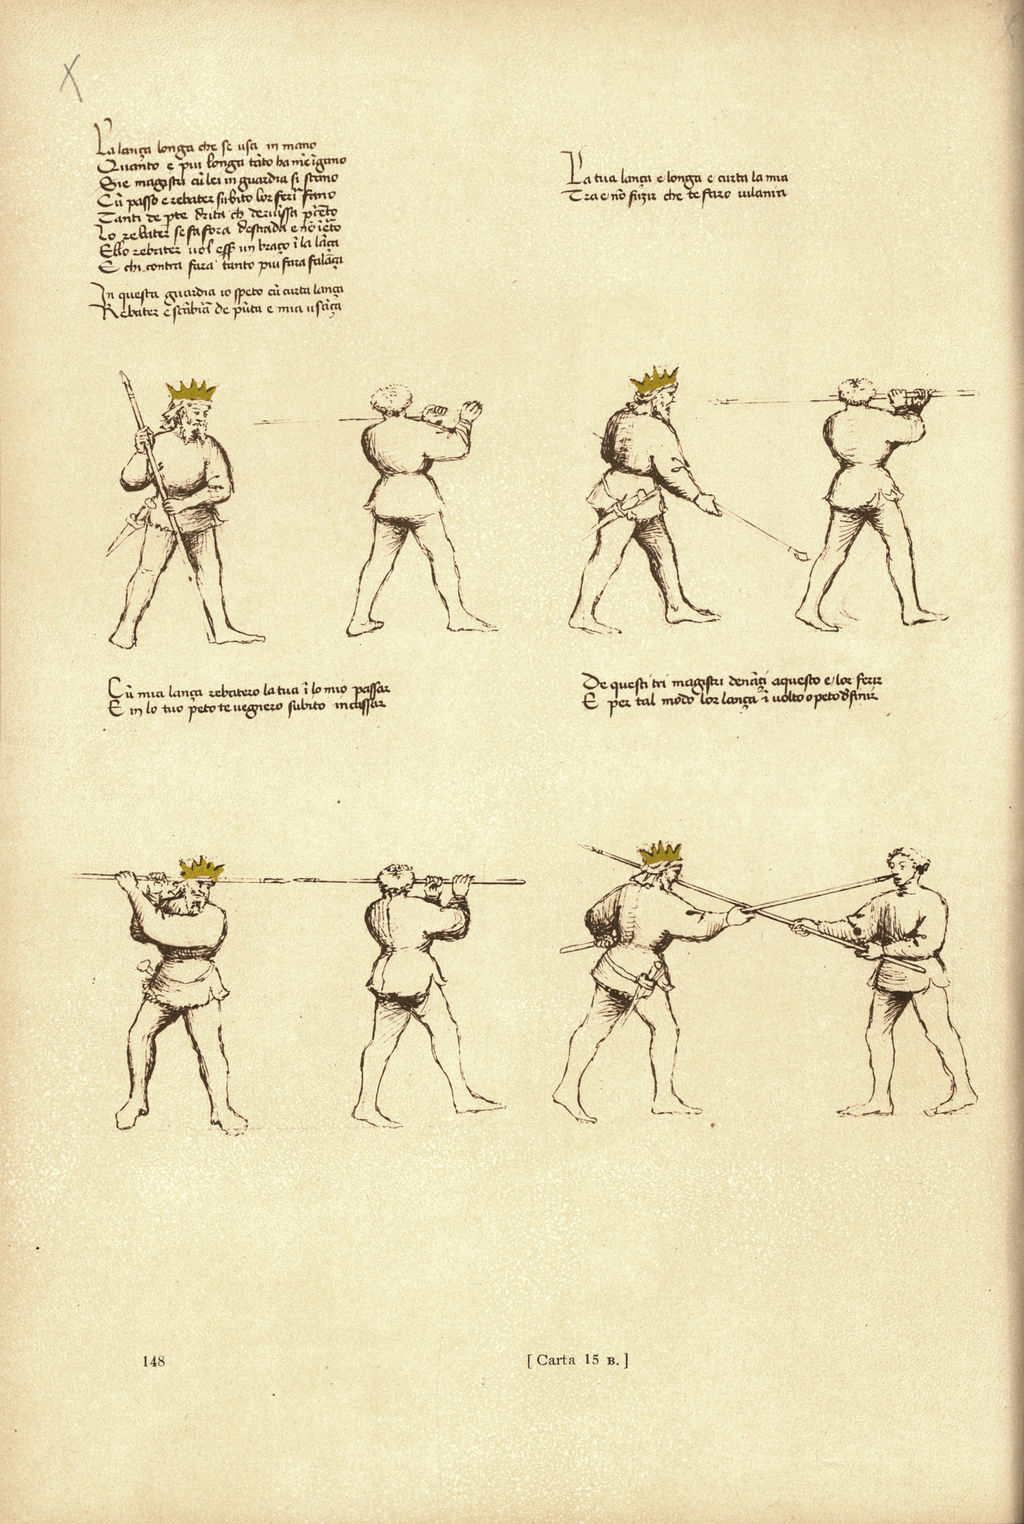 La lança longa che se usa in mano
Quanto e piu longa tãto ha mẽ ĩgano
Sie magistri cũ lei in guardia si stano
Cũ passo e rebater subito lor ferir fano
Tanti de pte drita
Lo rebater se fa fora de strada e nõ ĩ
Ello rebater vol esser un braço ĩ la lãça
E chi contra fara tanto piu fara falãça
In questa guardia io speto cũ curta lança
Rebater e scãbiar de pũta e mia usãça
La tua lança e longa e curta la mia
Tra e nõ fuzir che te faro vilania
Cũ mia lança rebatero la tua ĩ lo mio passar
E in lo tuo peto te vegniero subito incassar
De questi tri magistri denãçi aquesto e lor ferir
E per tal modo lor lança ĩ volto o peto finir
148
[ Carta 15 B. ]